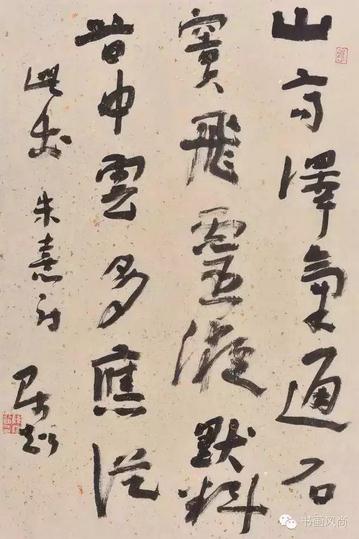 山高澤氣通石
竇飛靈液默料
谷中雲多應從
此出 朱熹詩
书画风尚